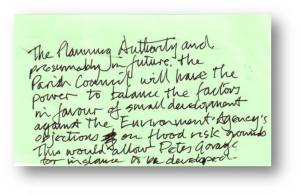 The Planning Authority and
presumably in future, the
Parish Council will have the
power to balance the factors
in favour of small development
against the Environment Agency's
objections on flood risk grounds
This would allow Peter's Garage
for instance to be developed.